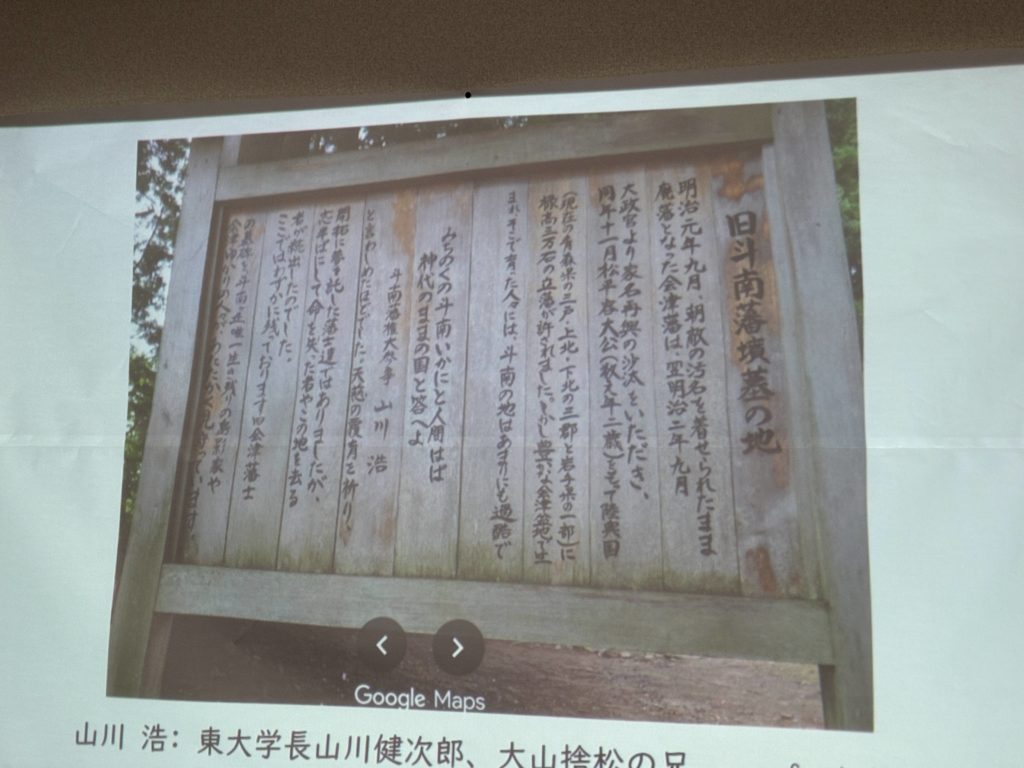 旧斗南藩墳墓の地
明治元年九月、朝敵の汚名を着せられたまま
廃藩となった会津藩は、翌明治二年九月
太政官より家名再興の沙汰をいただき、
同年十一月松平容大公(数え年二歳)をもって陸奥国
(現在の青森県の三戸・上北・下北の三郡と岩手県の一部)に
禄高三万石の立藩が許されました。しかし豊かな会津盆地で生
まれそこで育った人々には、斗南の地はあまりにも過酷で
みちのくの斗南いかにと人問はば
神代のままの国と答へよ
斗南藩権大参事 山川 浩
と言わしめたほどでした。天恵の
開拓に夢を託した藩士達ではありましたが、
志半ばにして命を失った者やこの地を去る
者が続出したのでした。
ここではわずかに残っております旧会津藩士
の墓碑を、斗南ヶ丘唯一
会津ゆかりの人々が
Google Maps
山川 浩: 東大学長山川健次郎、大山捨松の兄